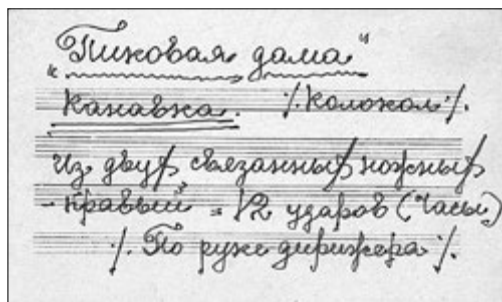 "Пиковая дама"
Канавка. ٪Колокол٪
Из двух связанных ножных
- "правый" = 12 ударов (Часы)
٪ По руке дирижера ٪